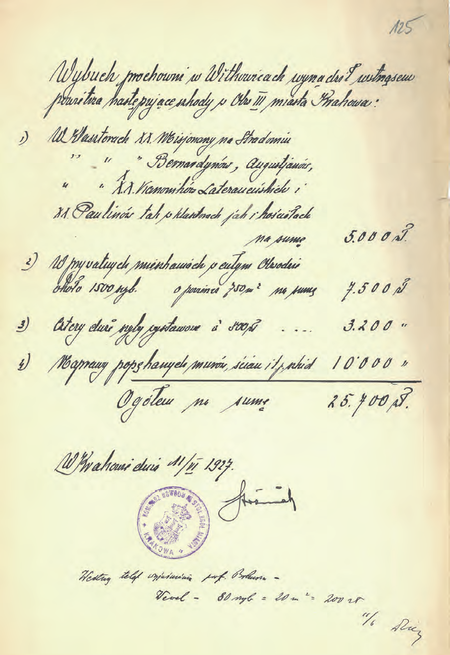 125
Wybuch prochowni w Witkowicach wyrządził wstrząsem
powietrza następujące szkody w Obw. III miasta Krakowa:
1) W Klasztorach XX. Misjonarzy na Stradomiu
" " " Bernardynów, Augustjanów,
" " XX. Kanoników Laterańskich i
XX. Paulinów tak w klasztorach jak i kościołach
na sumę 5.000 zł.
2) W prywatnych mieszkaniach w całym Obwodzie
około 1500 szyb. o powierz. 750 m² na sumę 7.500 zł.
3) Cztery duże szyby wystawowe à 800 zł .... 3.200 "
4) Naprawy popękanych murów, ścian i t p szkód 10.000 "
Ogółem na sumę 25.700 zł.
W Krakowie dnia 11/VI 1927.
Według
Wawel – 80 szyb = 20 m² = 200 zł